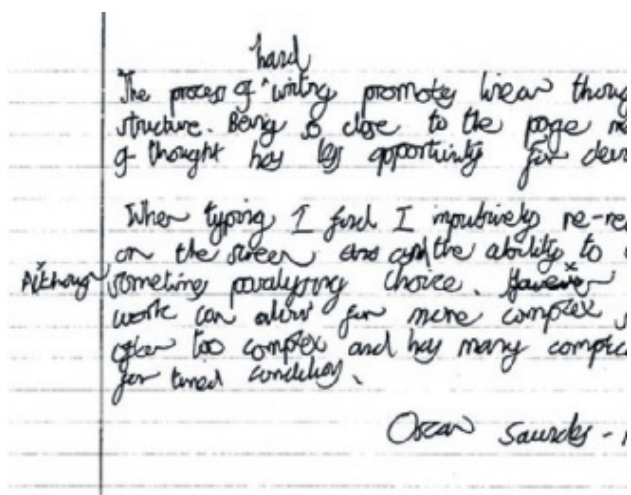 hard
The process of ^ writing promotes linear thoug
structure. Being so close to the page
of thought has less opportunity for
When typing I find I impulsively re-re
on the screen and the ability to
Although sometimes paralysing choice. However
work can allow for more complex
often too complex and has many
for timed conditions.
Oscar Saunders -